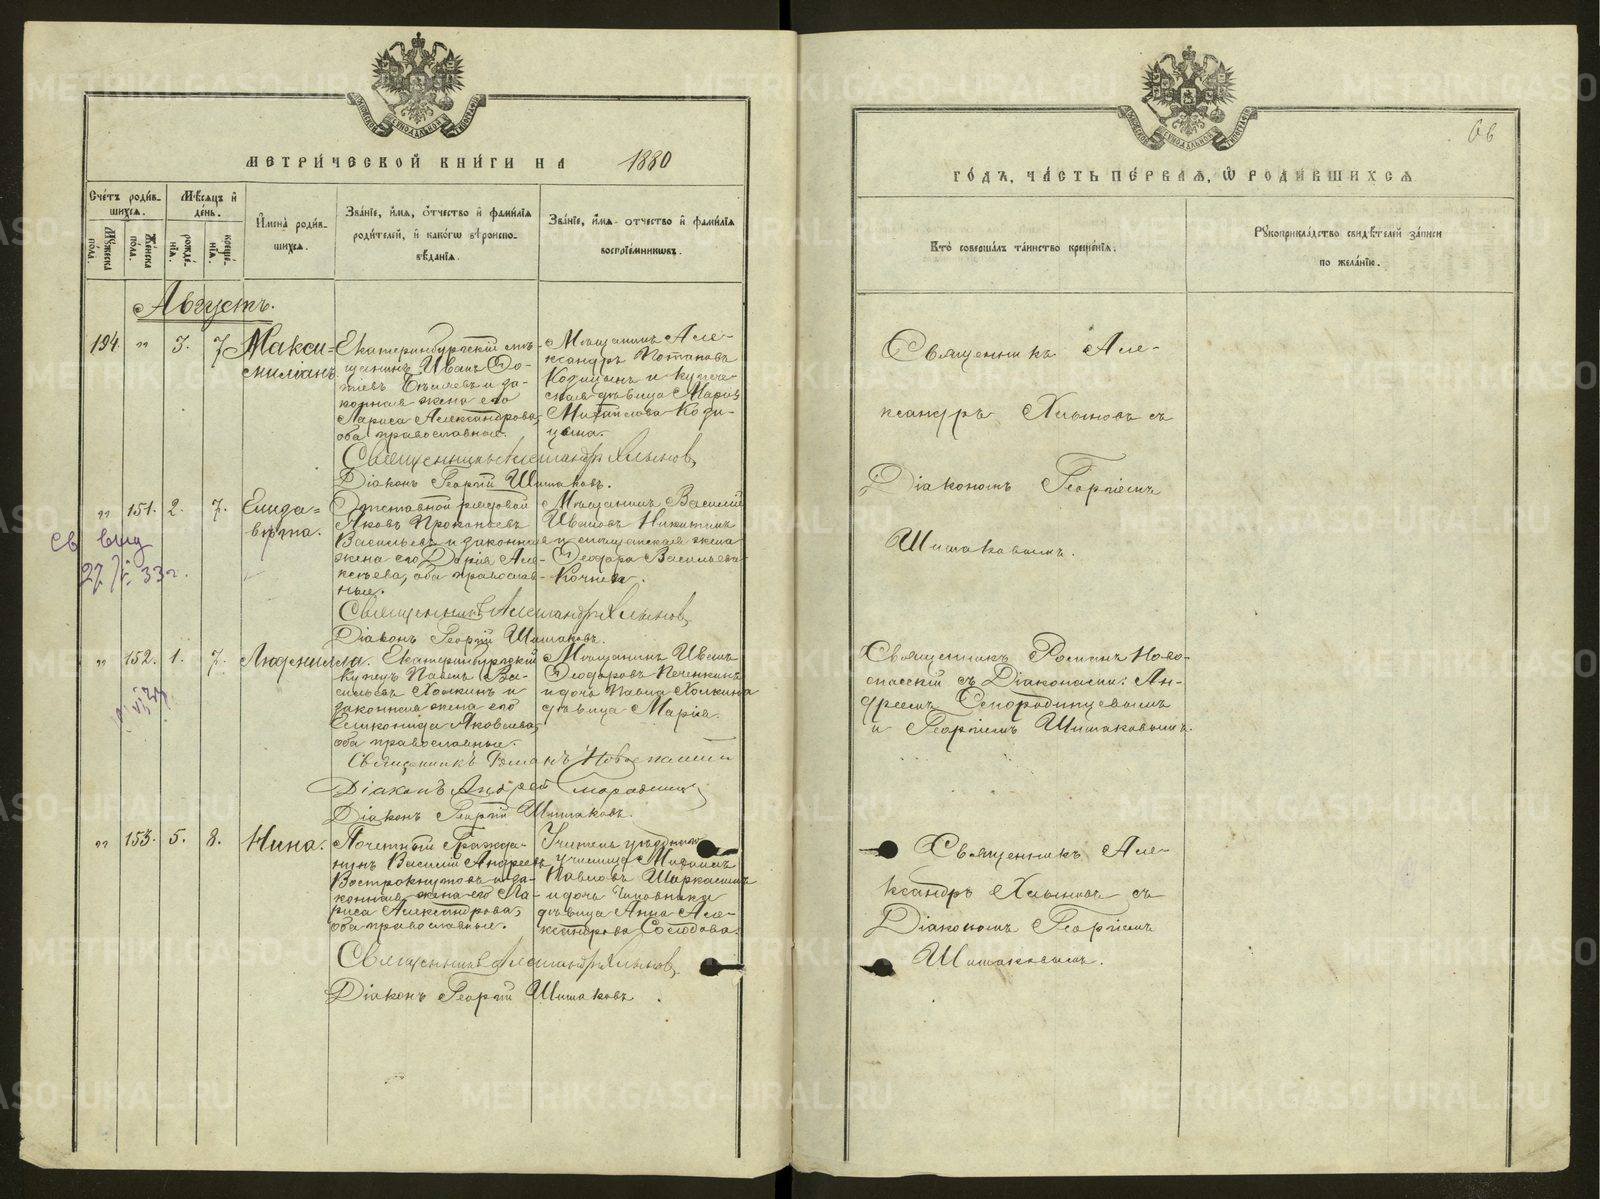 МЕТРИ́ЧЕСКОЙ КНИ́ГИ НА 1880
Сче́тъ роди́в-
шихся.
Мѣ́сяцъ и҆
де́нь.
И҆мена̀ роди́в-
шихся.
Зва́нїе, и҆́мя, ѻ҆́тчество и҆ фами́лїя
роди́телей, и҆ како́гѡ вѣроиспо-
вѣ́данїя.
Зва́нїе, и҆́мя, ѻ҆́тчество и҆ фами́лїя
воспрїе́мниковъ.
Мꙋ́жеска по́ла.
Же́нска по́ла.
рожде́-
нїя.
креще́-
нїя.
Августъ.
194. " 3. 7. Макси-
милiанъ.
Екатеринбургскiй мѣ-
щанинъ Иванъ Ѳо-
и за-
конная жена его
Лариса Александрова,
оба православные.
Мѣщанинъ Але-
ксандръ Потаповъ
Кодицынъ и купече-
ская дѣвица Марiя
Михайлова Коди-
цына.
Священникъ Александръ Хлыновъ
Дiаконъ Георгiй Шишаковъ.
" 151. 2. 7. Елиза-
вѣта.
Отставной рядовой
Яковъ Прокопьевъ
Васильевъ и законная
жена его Дарiя Але-
ксѣева, оба православ-
ные.
Мѣщанинъ Василiй
Ивановъ Никитинъ
и мѣщанская жена
Ѳеодора Васильева
св выд
27/V. 33 г.
Священникъ Александръ Хлыновъ
Дiаконъ Георгiй Шишаковъ.
" 152. 1. 7. Людмилла.
Екатеринбургскiй
купецъ Павелъ Ва-
сильевъ Холкинъ и
законная жена его
Еликонида Яковлева,
оба православные.
Мѣщанинъ Иванъ
Ѳеодоровъ Печенкинъ
и дочь Павла Холкина
дѣвица Марiя.
Священникъ Романъ Новоспасскiй
Дiаконъ Андрей
Дiаконъ Георгiй Шишаковъ.
" 153. 5. 8. Нина.
Почетный Гражда-
нинъ Василiй Андреевъ
Вострокнутовъ и за-
конная жена его Ла-
риса Александрова,
оба православные.
Учитель уѣзднаго
училища Михаилъ
Павловъ
и дочь Чиновника
дѣвица Анна Але-
ксандрова
Священникъ Александръ Хлыновъ
Дiаконъ Георгiй Шишаковъ.
66
ГО́ДЪ, ЧА́СТЬ ПЕ́РВАЯ, Ѡ҆ РОДИ́ВШИХСЯ
Кто̀ соверша́лъ та́инство креще́нїя.
Рꙋкоприкла́дство свидѣ́телей за́писи
по жела́нїю.
Священникъ Але-
ксандръ Хлыновъ съ
Дiакономъ Георгiемъ
Шишаковымъ.
Священникъ Романъ Ново-
спасскiй съ Дiаконами: Ан-
дреемъ
и Георгiемъ Шишаковымъ.
Священникъ Але-
ксандръ Хлыновъ съ
Дiакономъ Георгiемъ
Шишаковымъ.
METRIKI.GASO-URAL.RU